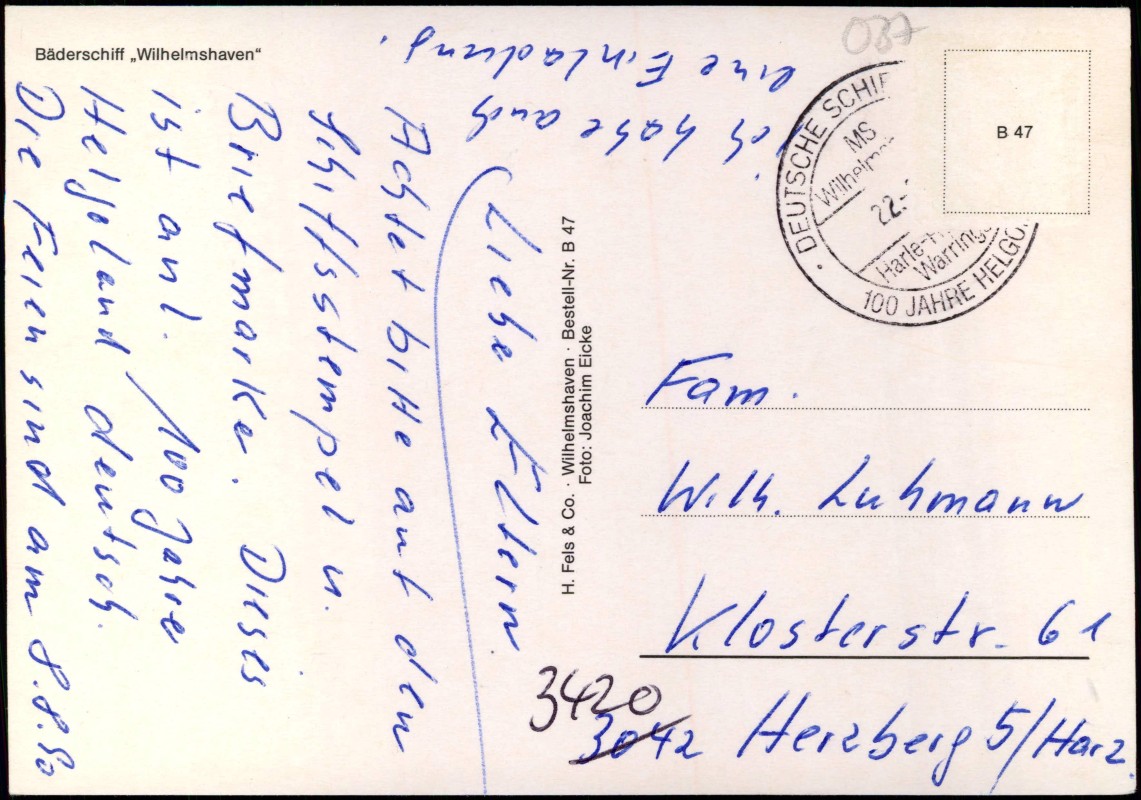 Bäderschiff „Wilhelmshaven“
Liebe Eltern
Achtet bitte auf den
Schiffsstempel u.
Briefmarke. Dieses
ist anl. 100 Jahre
Helgoland deutsch.
Die Feiern sind am 8.8.90
ich habe auch
eine Einladung.
H. Fels & Co. · Wilhelmshaven · Bestell-Nr. B 47
Foto: Joachim Eicke
087
B 47
DEUTSCHE SCHIF
MS
Wilhelms
22.
Harle-
Warringe
100 JAHRE HELGO
Fam.
Wilh. Luhmann
Klosterstr. 61
3420
3042 Herzberg 5/Harz